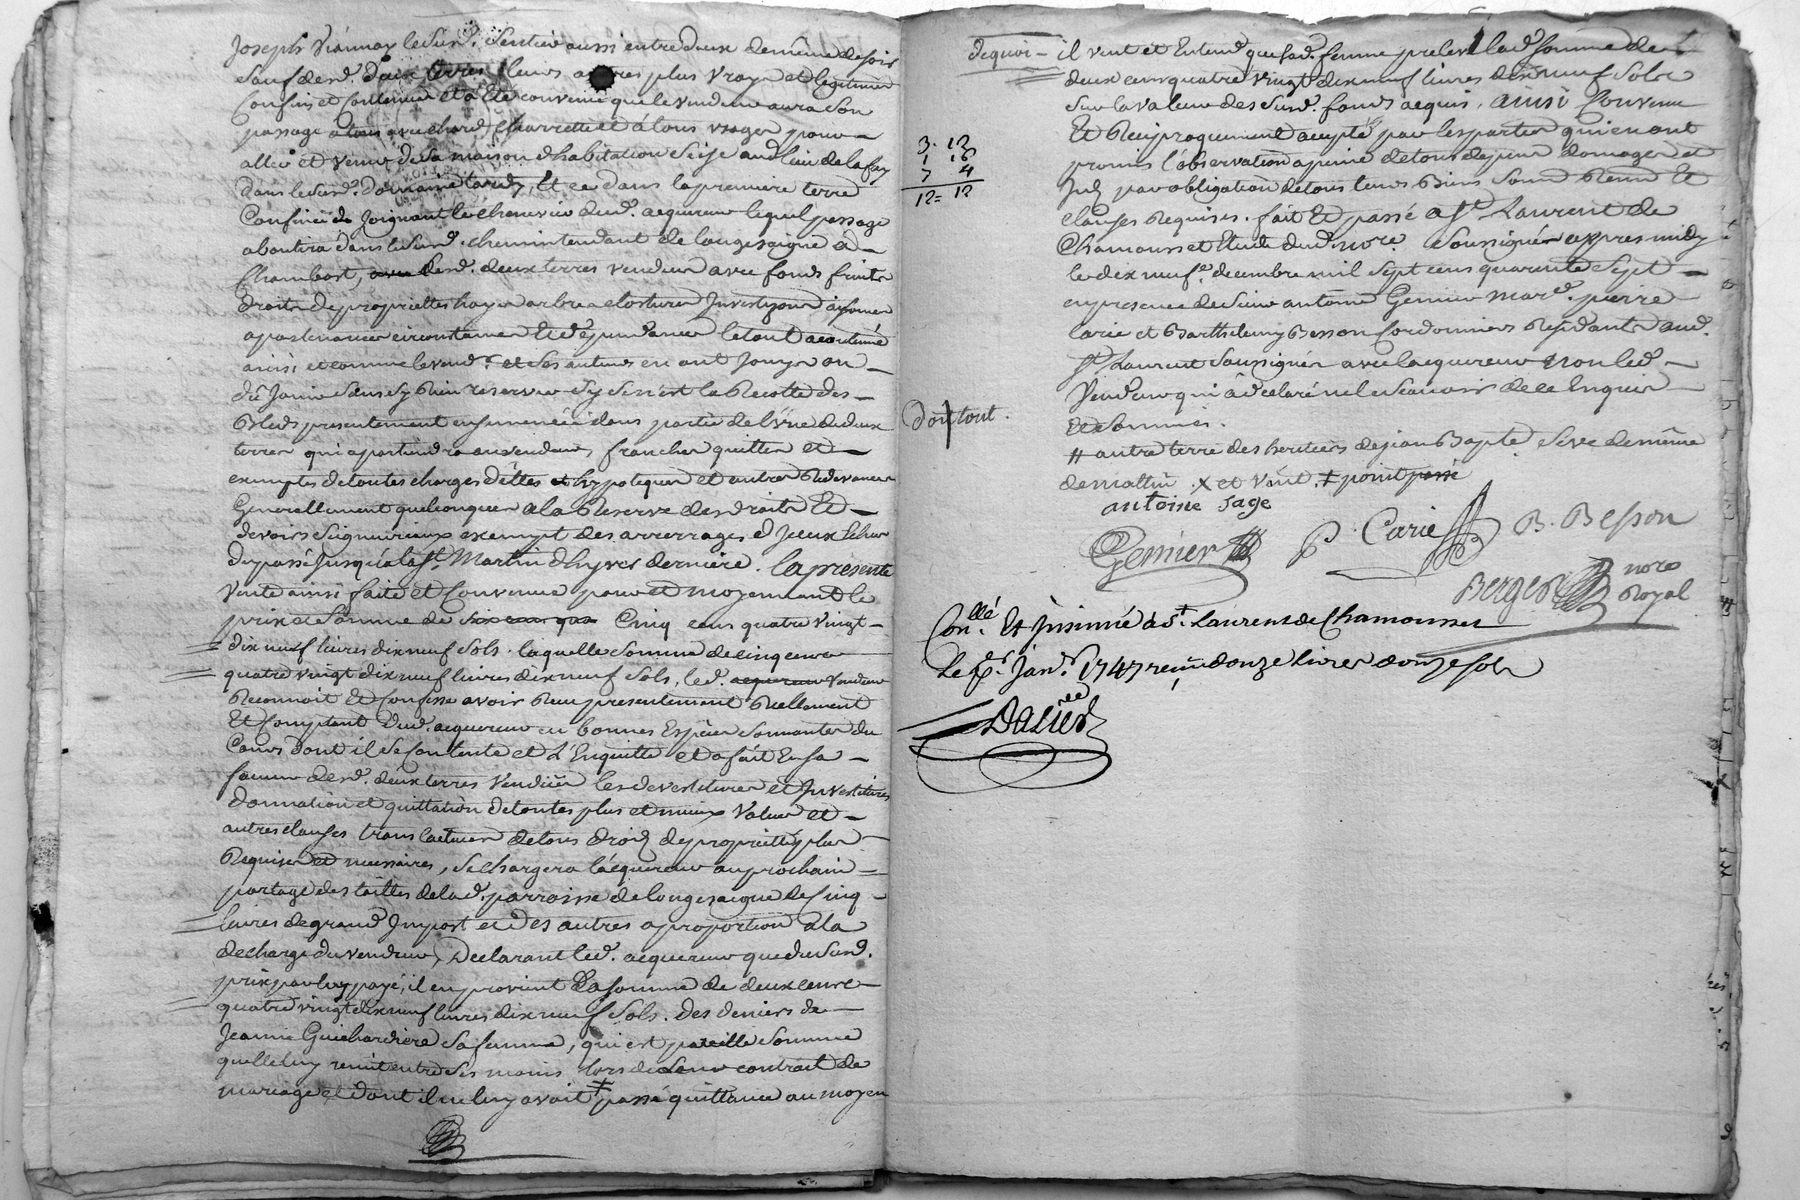 Joseph Viannay le Sus.d Sentier aussi entre deux de même de soir
Sauf desd. deux terres leurs autres plus vrays et legitimes
Confins et Contenue et a été convenu que le vendeur aura son
passage a tous avec chard, Charrette et à tous usages pour
aller et venir de sa maison d'habitation Seise aud. lieu de la fay
dans le Susd. domaine tardy, Et ce dans la première terre
Confinée Joignant le chenevier dud. acquereur lequel passage
aboutira dans le Susd. chemin tendant de longesaigne à
Chambost, lesd. deux terres vendues avec fonds fruits
droits de proprietté hayes arbres clostures Juvestizons aisances
apartenances circonstances Et dépendances le tout acoutumé
ainsi et comme le vend.r et Ses auteurs en ont Jouy ou
dû Jouir Sans y Rien reserver Sy Sen'est la Recolte des
Bleds presentement ensemencés dans partie de l'une des deux
terres qui apartiendra au vendeur, franches quittes et
exemptes de toutes charges dettes et hypoteques et autres Redevances
Generallement quelconques à la Reserve des droits Et
devoirs Seigneuriaux exempt des arrerrages d'yceux Echus
du passé Jusqu'à la St. Martin d'hyver dernière. la presente
Vente ainsi faite et Convenue pour et moyennant le
prix et Somme de Cinq cens quatre vingt
dix neuf livres dix neuf Sols. laquelle Somme de cinq cens
quatre vingt dix neuf livres dix neuf Sols, led. acquereur Vendeur
Reconnoit Et Confesse avoir Reçu presentement Réellement
Et Comptant dud. acquereur en bonnes Espèces Sonnantes du
Cours dont il Se Contente et L'En quitte et a fait En Sa
faveur desd. deux terres Vendües les devestitures et Investitures
donnation et quittation de toutes plus et mieux Value et
autres clauses translatives de tous droits de proprietté plus
Requises et necessaires, Se chargera l'acquereur au prochain
partage des tailles de lad. parroisse de longesaigne de Cinq
livres de grand Import et des autres a proportion à la
decharge du vendeur, Declarant led. acquereur que du Susd.
prix par luy payé, il en provient La Somme de deux cens
quatre vingt dix neuf livres dix neuf Sols. des deniers de
Jeanne Guichardiere Sa femme, qui est pareille Somme
qu'elle luy remit entre Ses mains lors de Leur contrait de
mariage et dont il ne luy avoit ‡ passé quittance au moyen
dequoi il veut et Entend que Sad. femme preleve lad. Somme de
deux cens quatre vingt dix neuf livres dix neuf Sols
Sur la valeur des Susd. fonds acquis. ainsi Convenu
Et Reciproquement accepté par les parties qui en ont
promis l'observation a peine de tous depens domages et
par obligation de tous leurs Biens Soum. Renon. Et
clauses Requises. fait Et passé a St. Laurent de
Chamousset Etude dud. nore Soussigné après midy
le dix neuf.e decembre mil Sept cens quarente Sept
en presence de Sieur antoine Genier Mard. pierre
Carie et Barthelemy Besson Cordonniers Residants aud.
St. Laurent Soussignés avec l'acquereur non led.
Vendeur qui a declaré ne le Scavoir de ce Enquis
Et Sommé.
# autre terre des heritiers de jean Bapte. Seve de même
de matin. x et vint. ‡ point passé
antoine Sage
Genier P. Carie B. Besson
Berger nore Royal
3. 12
1 16
7 4
12= 12
Don tout.
Conllé. Et Insinué à St. Laurens de Chamousset
Le Janr. 1747 reçu douze livres douze sols
Dalier